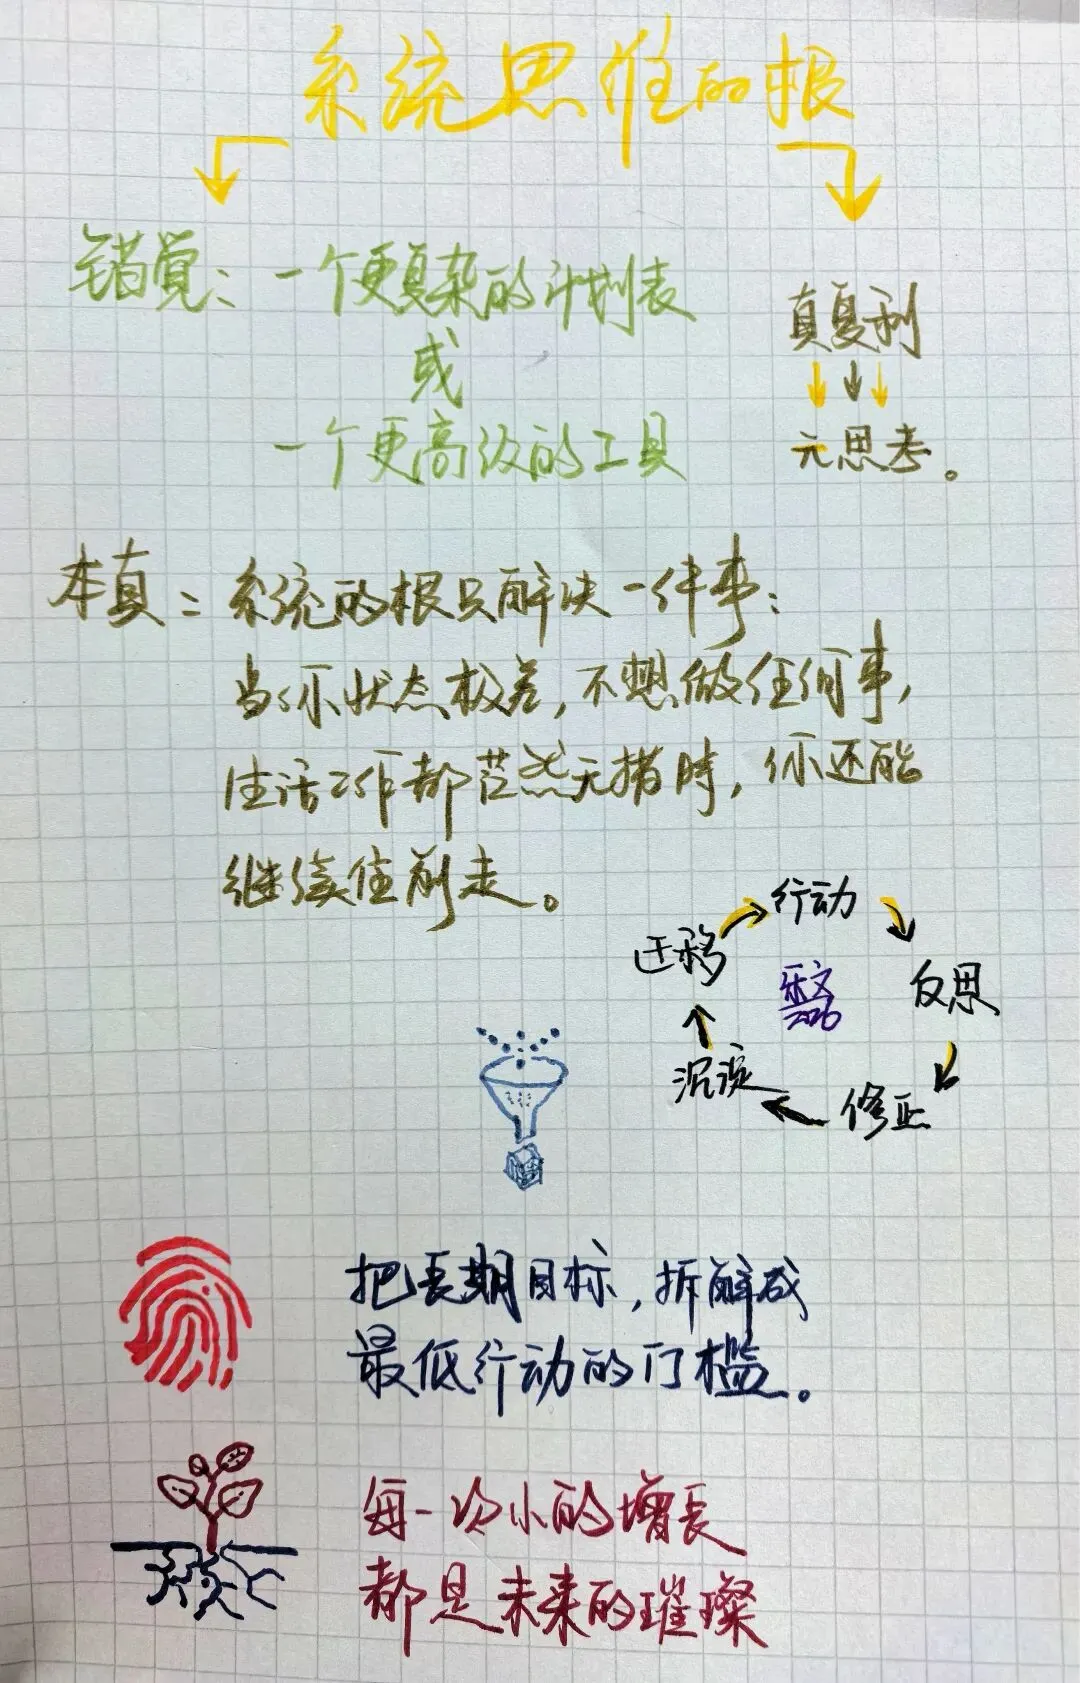 系统思维的根
错觉：一个更复杂的计划表
或
一个更高级的工具
真复利
元思考。
本真：系统的根只解决一件事：
当你状态极差，不想做任何事，
生活工作都茫然无措时，你还能
继续往前走。
行动
反思
修正
沉淀
迁移
2026
把长期目标，拆解成
最低行动的门槛。
每一次小的增长
都是未来的璀璨